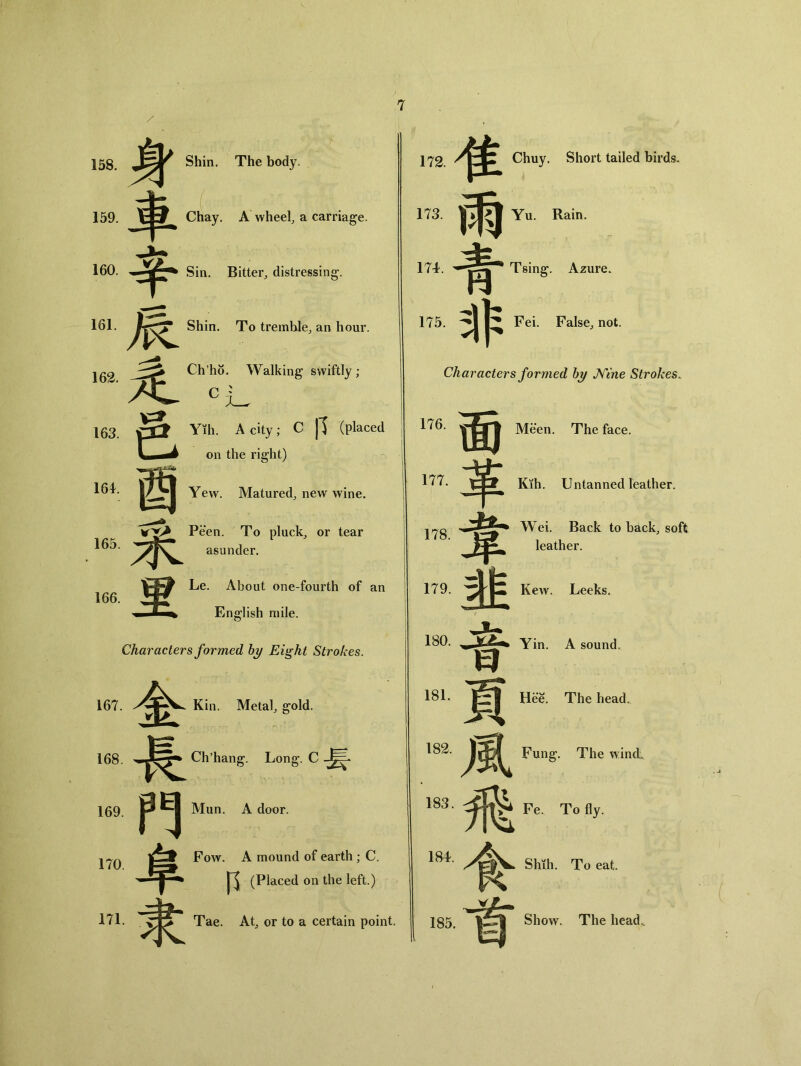 7
158. 身 Shin. The body.
159. 車 Chay. A wheel, a carriage.
160. 辛 Sin. Bitter, distressing.
161. 辰 Shin. To tremble, an hour.
162. 辵 Ch'hŏ. Walking swiftly;
C 辶
163. 邑 Yĭh. A city; C 阝 (placed
on the right)
164. 酉 Yew. Matured, new wine.
165. 釆 Pëen. To pluck, or tear
asunder.
166. 里 Le. About one-fourth of an
English mile.
Characters formed by Eight Strokes.
167. 金 Kin. Metal, gold.
168. 長 Ch'hang. Long. C 镸
169. 門 Mun. A door.
170. 阜 Fow. A mound of earth; C.
阝 (Placed on the left.)
171. 隶 Tae. At, or to a certain point.
172. 隹 Chuy. Short tailed birds.
173. 雨 Yu. Rain.
174. 靑 Tsing. Azure.
175. 非 Fei. False, not.
Characters formed by Nine Strokes.
176. 面 Mëen. The face.
177. 革 Kĭh. Untanned leather.
178. 韋 Wei. Back to back, soft
leather.
179. 韭 Kew. Leeks.
180. 音 Yin. A sound.
181. 頁 Hëĕ. The head.
182. 風 Fung. The wind.
183. 飛 Fe. To fly.
184. 食 Shĭh. To eat.
185. 首 Show. The head.